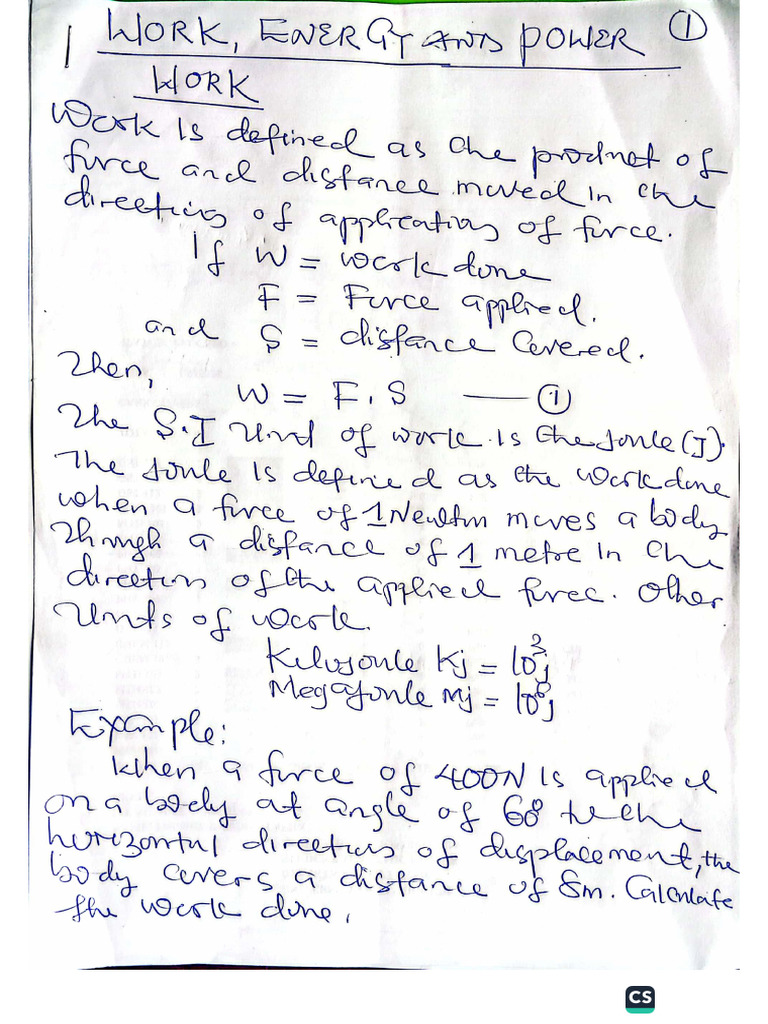 1 WORK, ENERGY AND POWER ①
WORK
Work is defined as the product of
force and distance moved in the
direction of application of force.
If W = work done
F = Force applied.
and S = distance Covered.
Then,
W = F . S —— ①
The S.I Unit of work is the Joule (J).
The Joule is defined as the work done
when a force of 1 Newton moves a body
through a distance of 1 metre in the
direction of the applied force. Other
Units of work.
Kilojoule Kj = 10³j
Megajoule Mj = 10⁶j
Example:
When a force of 400N is applied
on a body at angle of 60° to the
horizontal direction of displacement, the
body covers a distance of 8m. Calculate
the work done.
CS